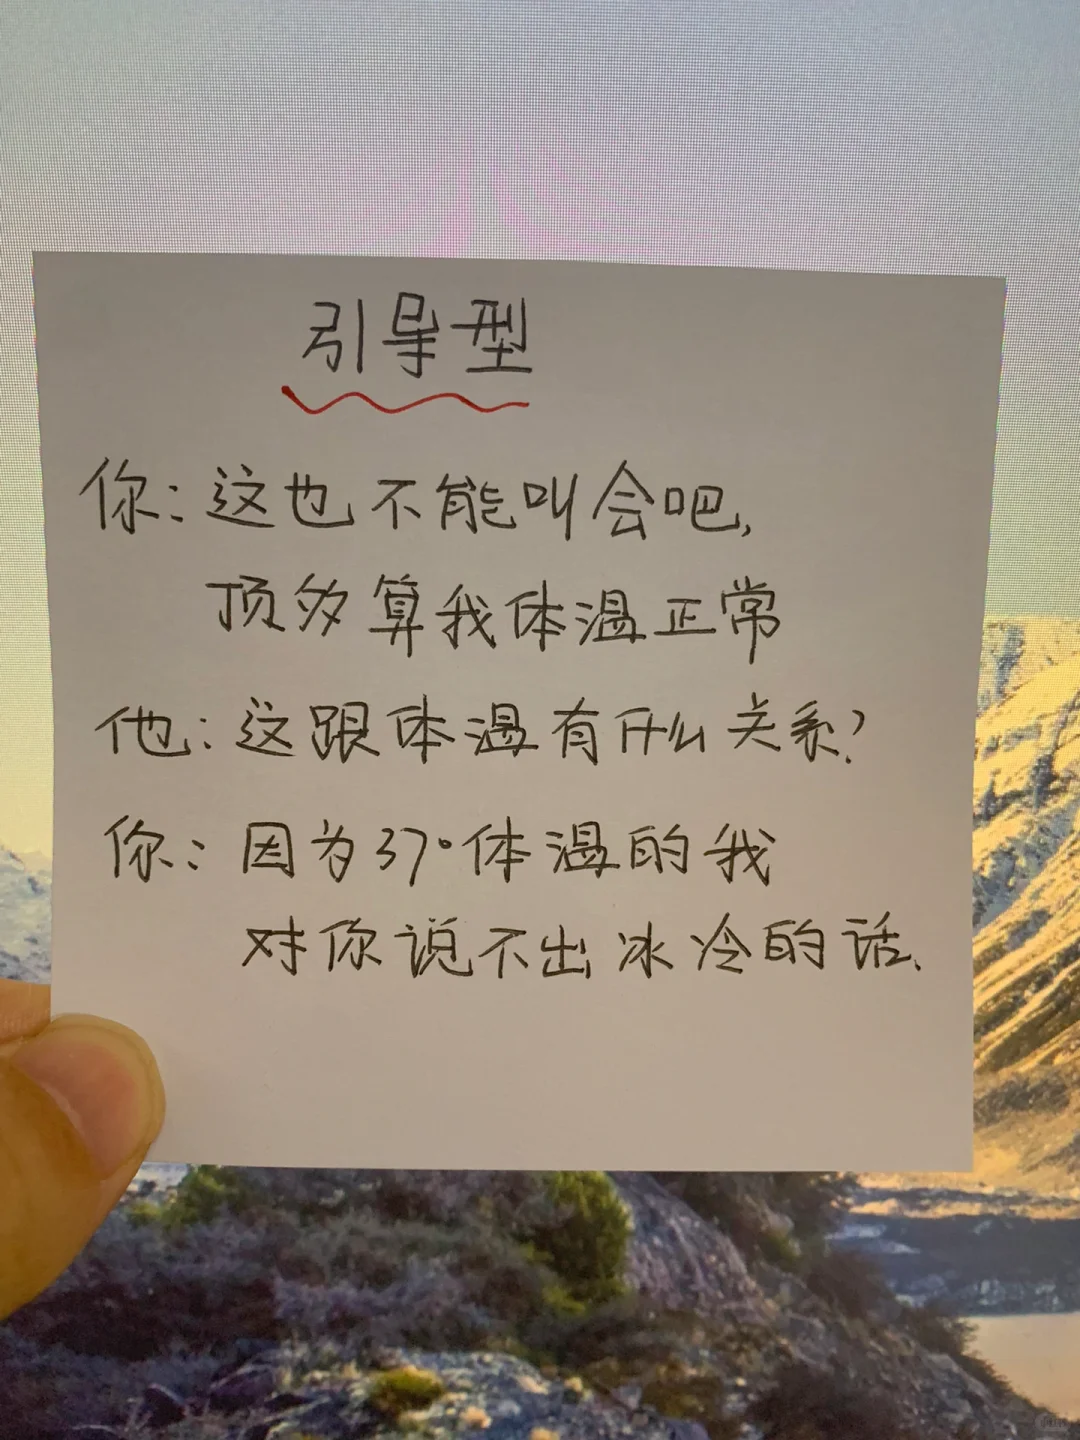 引导型
你：这也不能叫会吧，
顶多算我体温正常
他：这跟体温有什么关系？
你：因为37°体温的我
对你说不出冰冷的话、